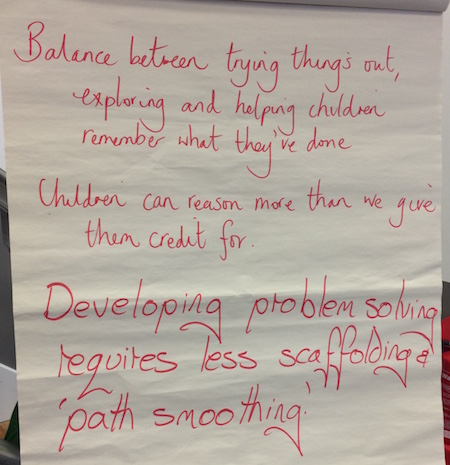 Balance between trying things out,
exploring and helping children
remember what they've done
Children can reason more than we give
them credit for.
Developing problem solving
requires less scaffolding &
'path smoothing.'